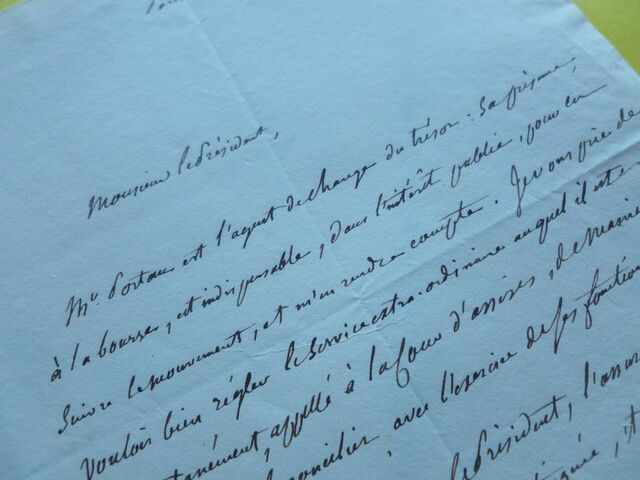 Monsieur le Président,
Mr. est l'agent de change du trésor: Sa présence,
à la bourse, est indispensable, dans l'intérêt public, pour en
Suivre le mouvement, et m'en rendre compte. Je vous prie de
vouloir bien régler le Service extra-ordinaire auquel il est
appellé à la Cour d'assises, de manière
concilier, avec l'exercice de ses fonctions
le Président, l'assur